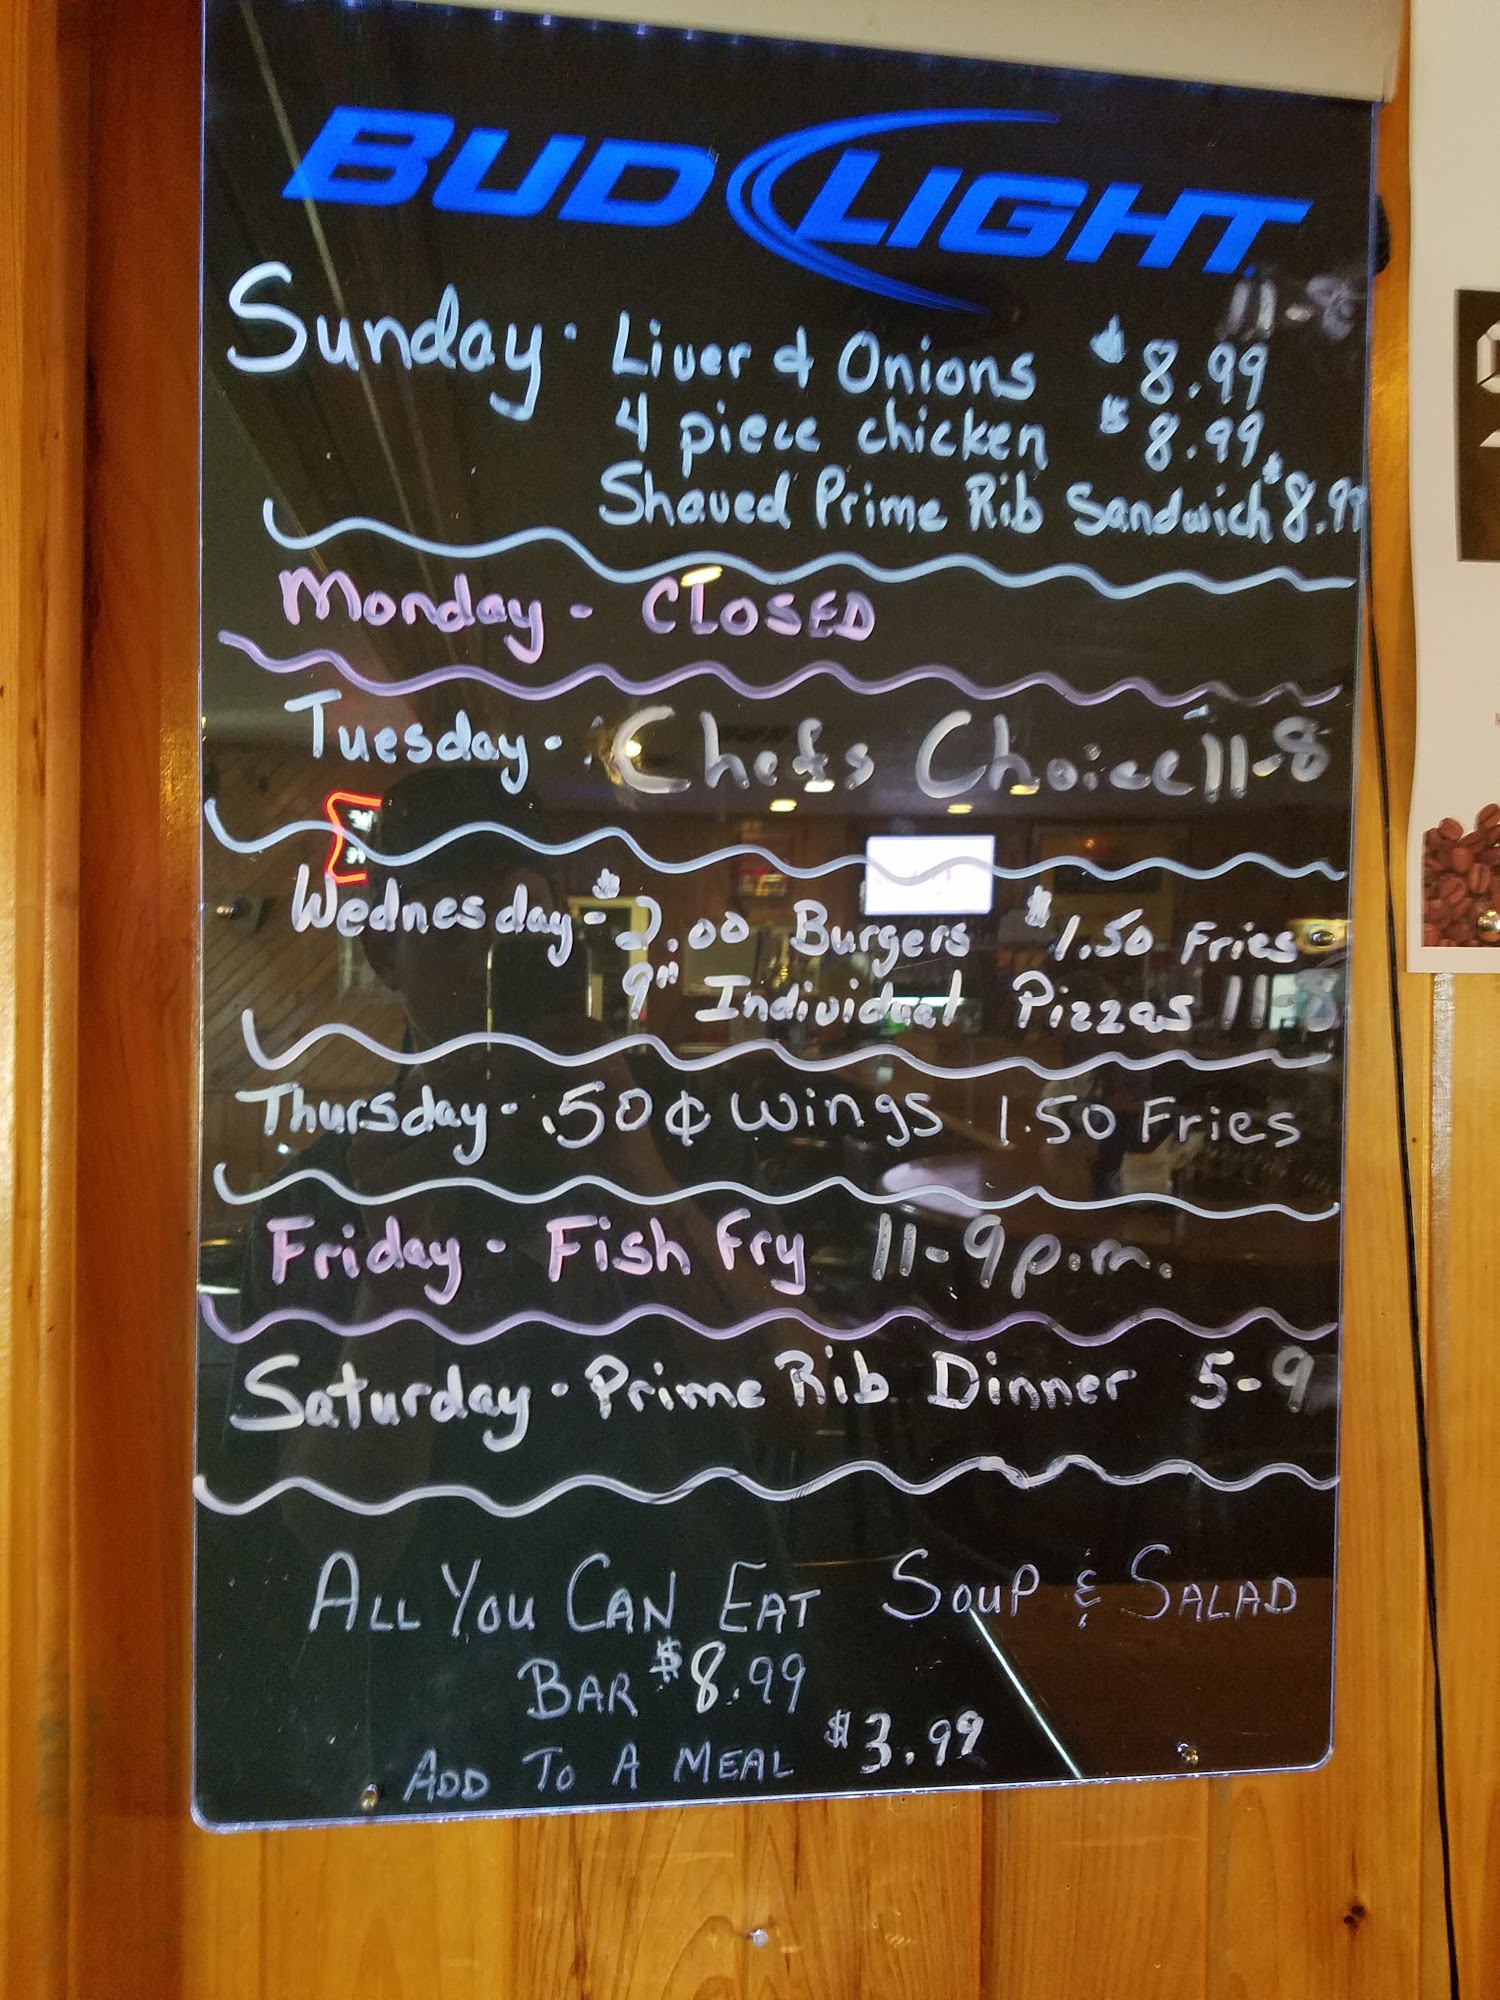 BUD LIGHT
11-8
Sunday - Liver & Onions $8.99
4 piece chicken $8.99
Shaved Prime Rib Sandwich $8.99
Monday - CLOSED
Tuesday - Chefs Choice 11-8
Wednesday - $2.00 Burgers $1.50 Fries
9" Individual Pizzas 11-8
Thursday - .50¢ Wings 1.50 Fries
Friday - Fish Fry 11-9 p.m.
Saturday - Prime Rib Dinner 5-9
ALL YOU CAN EAT SOUP & SALAD
BAR $8.99
ADD TO A MEAL $3.99